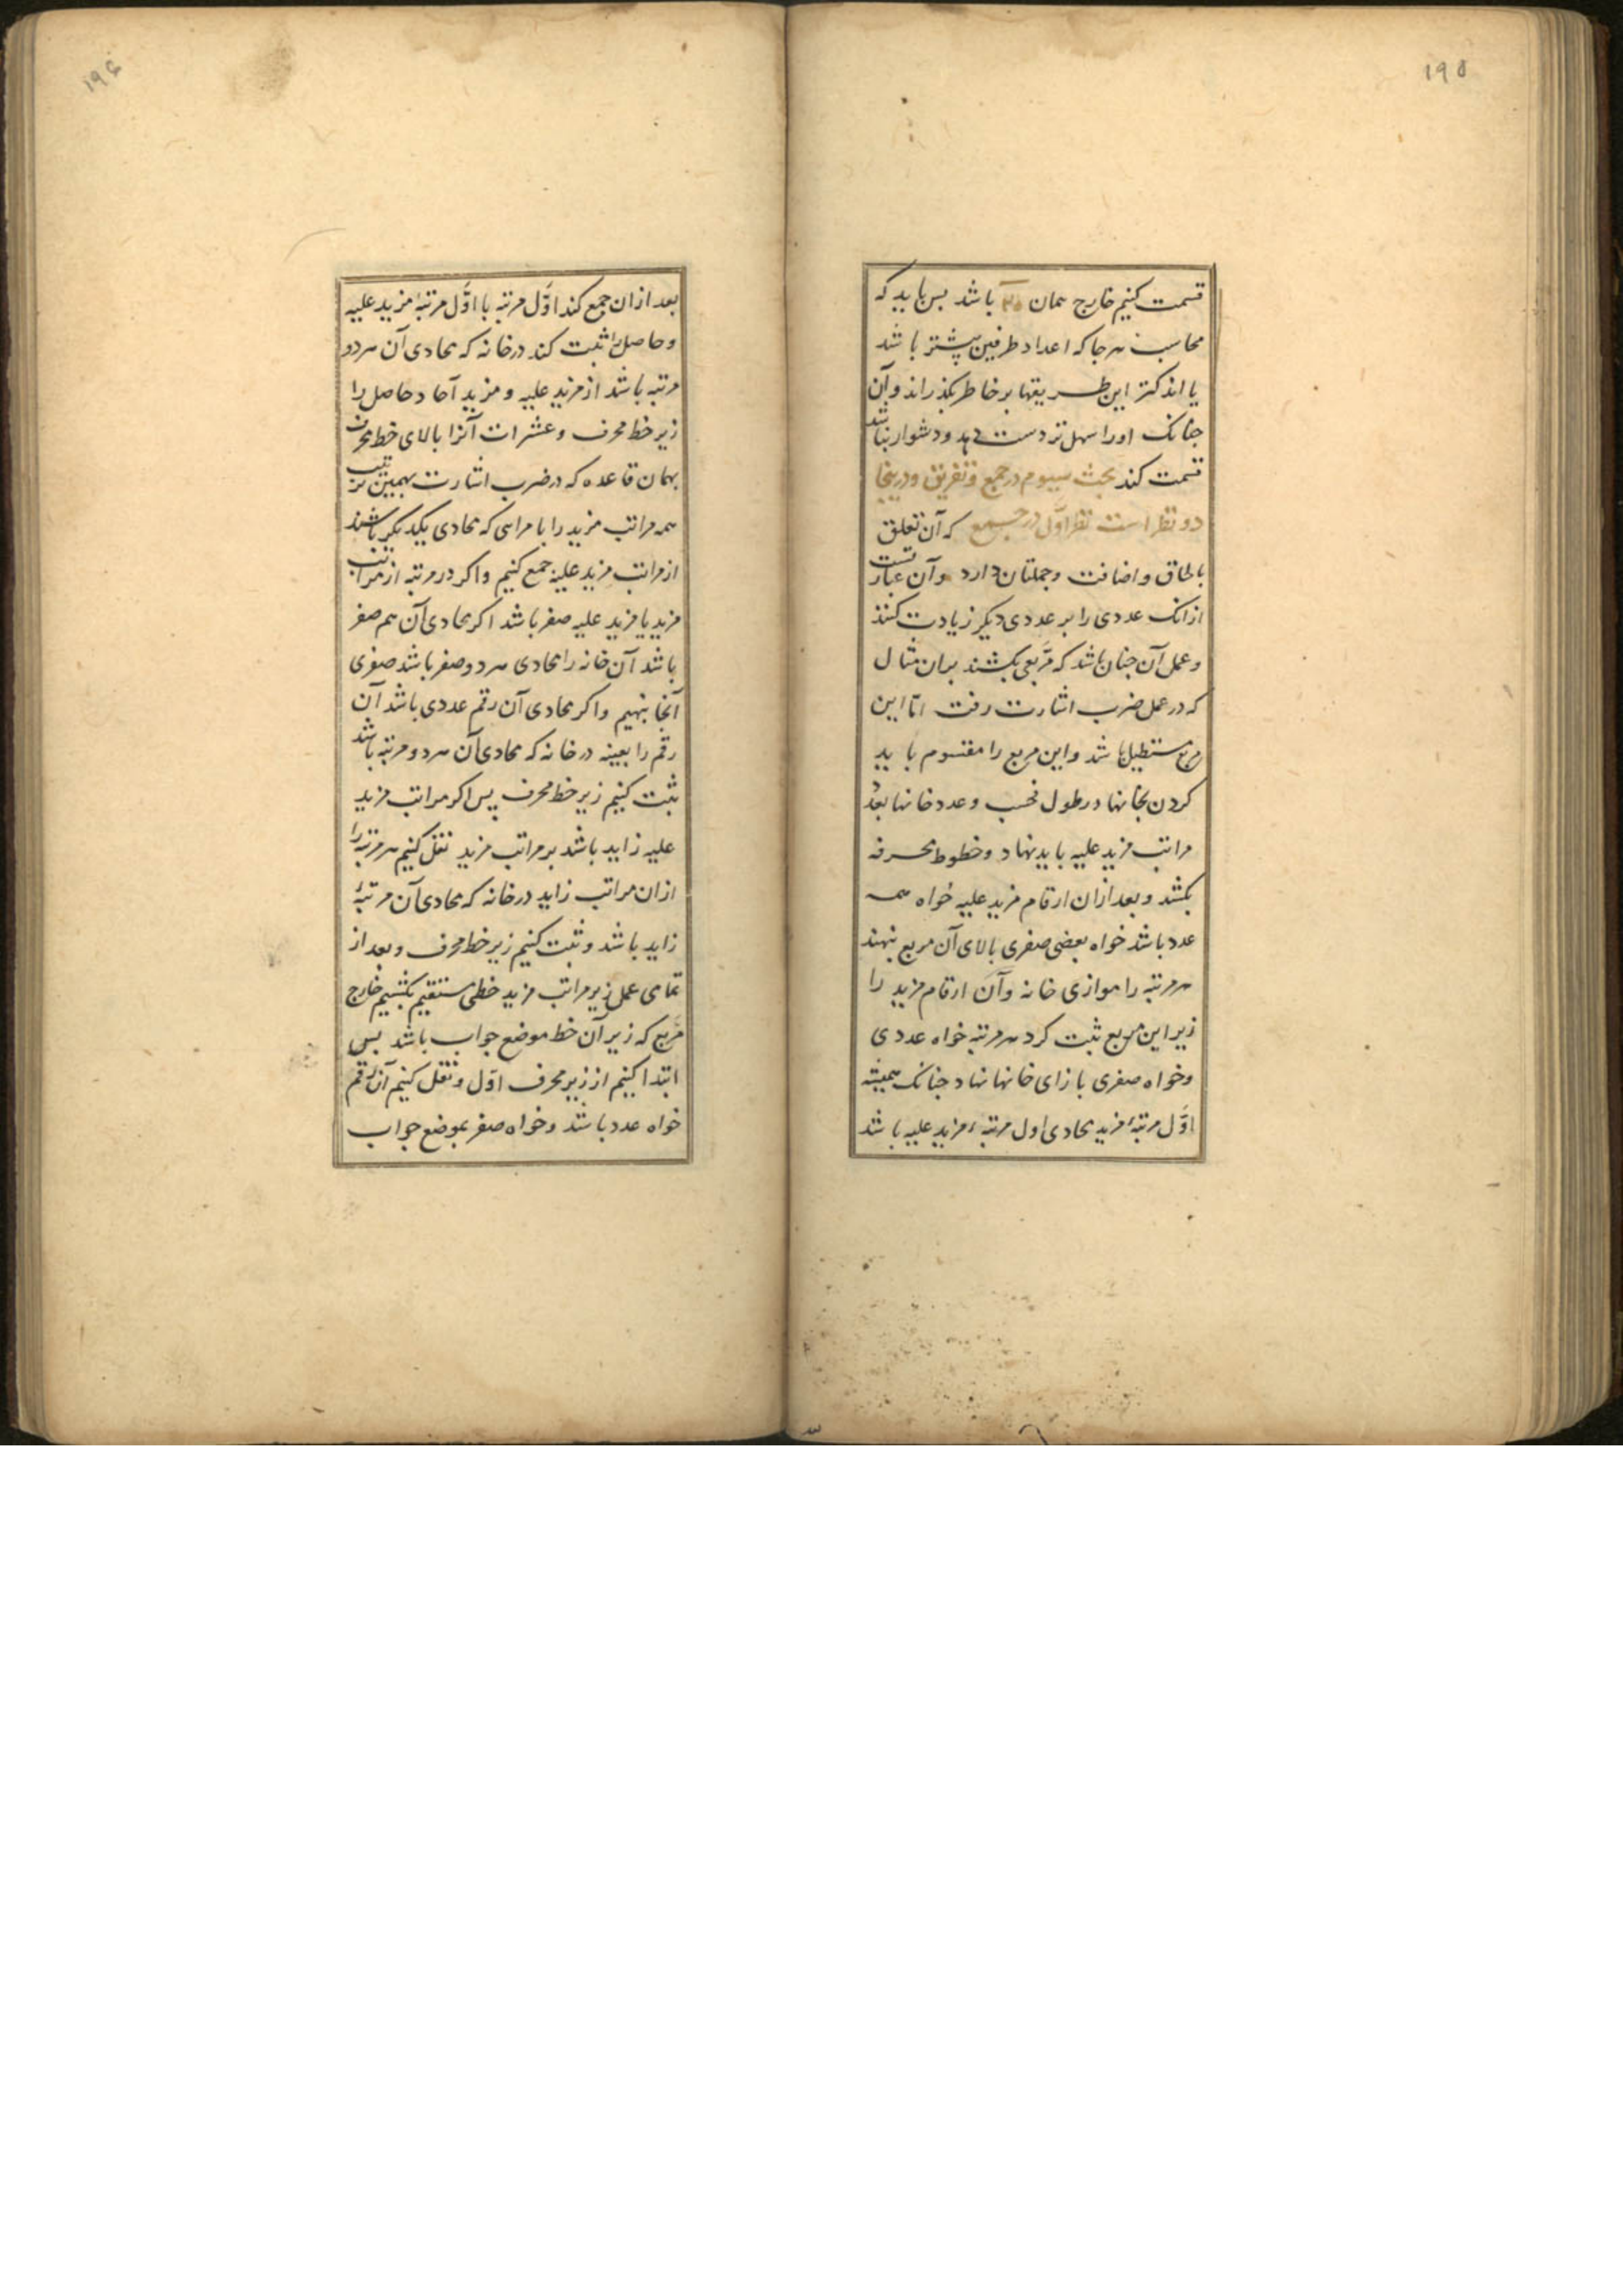 ۱۹۵
قسمت کنیم خارج همان ۳۵ باشد بس باید که
محاسب هرجا که اعداد طرفین بیشتر باشد
یا اندکتر این طریقها بر خاطر بکذراند و بآن
جنانک اورا سهل تر دست دهد و دشوار نباشد
قسمت کند بحث سیوم در جمع و تفریق و درینجا
دو نظر است نظر اوّل در جمع که آن تعلق
بالحاق و اضافت و جملتان دارد و آن عبارتست
از انک عددی را بر عددی دیکر زیادت کنند
و عمل آن جنان باشد که مربّعی بکشند بران مثال
که در عمل ضرب اشارت رفت امّا این
مربع مستطیل باشد و این مربع را مقسوم باید
کردن بخانها در طول فحسب و عدد خانها بعدّ
مراتب مزید علیه باید نهاد و خطوط محرفه
بکشد و بعد ازان ارقام مزید علیه خواه همه
عدد باشد خواه بعضی صفری بالای آن مربع نهند
هر مرتبه را موازی خانه و آن ارقام مزید را
زیر این مربع ثبت کرد هر مرتبه خواه عددی
و خواه صفری بازای خانها نهاد جنانک همیشه
اوّل مرتبهٔ مزید محاذی اول مرتبهٔ مزید علیه باشد
۱۹۶
بعد ازان جمع کند اوّل مرتبه با اوّل مرتبهٔ مزید علیه
و حاصل را ثبت کند در خانه که محاذی آن هر دو
مرتبه باشد از مزید علیه و مزید آحاد حاصل را
زیر خط محرف و عشرات آنرا بالای خط محرف
بهمان قاعده که در ضرب اشارت بهمین ترتیب
همه مراتب مزید را با مراتبی که محاذی یکدیکر باشند
از مراتب مزید علیه جمع کنیم و اکر در مرتبه از مراتب
مزید یا مزید علیه صفر باشد اکر محاذی آن هم صفر
باشد آن خانه را محاذی هر دو صفر باشد صفری
آنجا بنهیم و اکر محاذی آن رقم عددی باشد آن
رقم را بعینه در خانه که محاذی آن هر دو مرتبه باشد
ثبت کنیم زیر خط محرف پس اکر مراتب مزید
علیه زاید باشد بر مراتب مزید نقل کنیم هر مرتبه را
ازان مراتب زاید در خانه که محاذی آن مرتبهٔ
زاید باشد و ثبت کنیم زیر خط محرف و بعد از
تمامی عمل زیر مراتب مزید خطی مستقیم بکشیم خارج
مربّع که زیر آن خط موضع جواب باشد بس
ابتدا کنیم از زیر محرف اوّل و نقل کنیم آن رقم
خواه عدد باشد و خواه صفر بموضع جواب